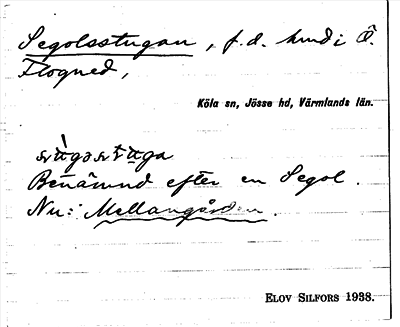 Segolsstugan, f.d. hmd i Ö.
Flogned,
Köla sn, Jösse hd, Värmlands län.
Benämnd efter en Segol.
Nu: Mellangården.
ELOV SILFORS 1938.